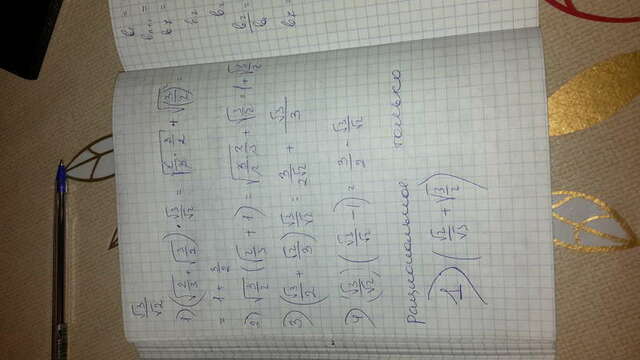 √3/√2
1) (√(2/3) + √(3/2)) · √3/√2 = √(2/3 · 3/2) + √(3/2)² =
= 1 + 3/2
2) √(3/2) (√(2/3) + 1) = √(3/2 · 2/3) + √(3/2) = 1 + √(3/2)
3) (√3/2 + √2/3) √3/√2 = 3/2√2 + √3/3
4) (√3/√2) (√3/√2 - 1) = 3/2 - √3/√2
Рациональное только
1) (√2/√3 + √(3/2))
b₇ =